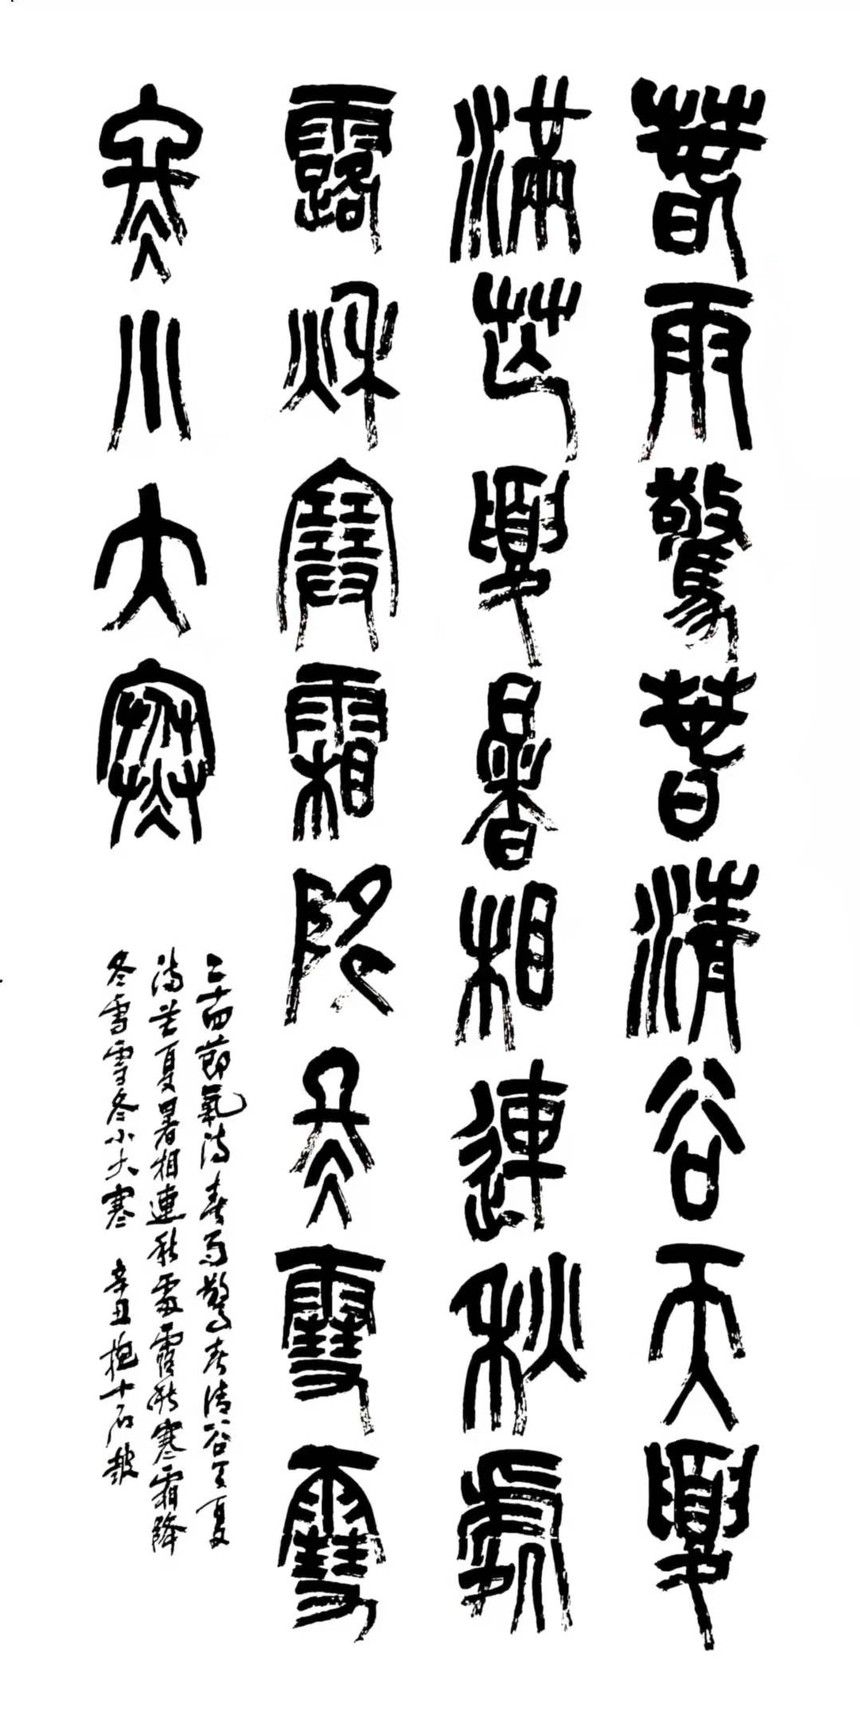 春雨驚春清谷天夏
滿芒夏暑相連秋處
露秋寒霜降冬雪雪
冬小大寒
二十四節氣詩春雨驚春清谷天夏
滿芒夏暑相連秋處露秋寒霜降
冬雪雪冬小大寒 辛丑 十石